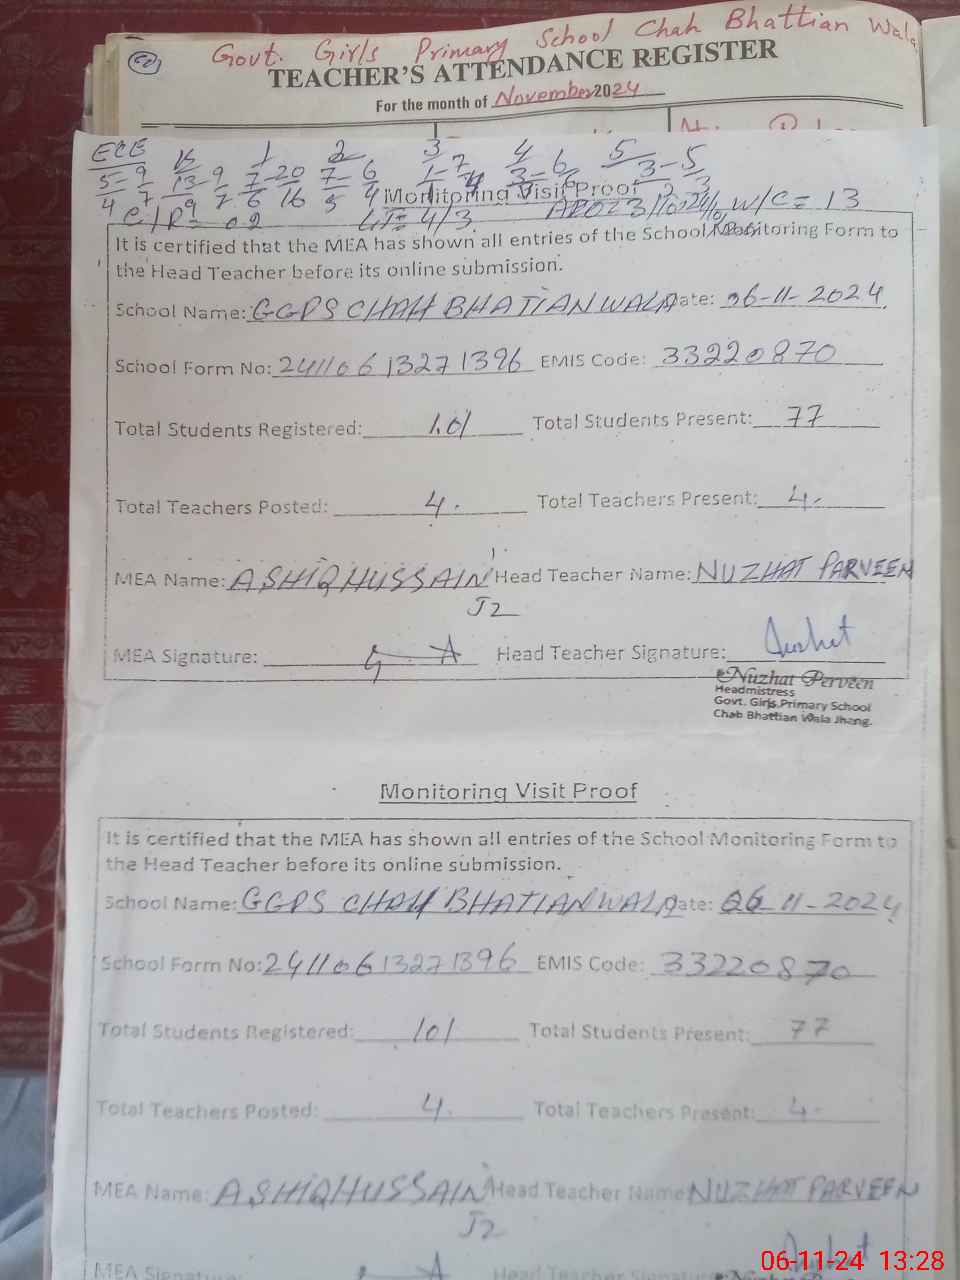 Govt. Girls Primary School Chah Bhattian Wala
TEACHER'S ATTENDANCE REGISTER
For the month of November 2024
ECE K 1 2 3 4 5
5-9 13-9 7-20 7-6 1-7 3-6 3-5
4 7 9 7 6 16 5 4
C/R = 02 LT= 4/3 W/C = 13
Monitoring Visit Proof
It is certified that the MEA has shown all entries of the School Monitoring Form to
the Head Teacher before its online submission.
School Name: GGPS CHAH BHATIAN WALA Date: 06-11-2024
School Form No: 2411061327 1396 EMIS Code: 33220870
Total Students Registered: 101 Total Students Present: 77
Total Teachers Posted: 4. Total Teachers Present: 4.
MEA Name: ASHIQ HUSSAIN Head Teacher Name: NUZHAT PARVEEN
J2
MEA Signature: Head Teacher Signature:
Nuzhat Perveen
Headmistress
Govt. Girls Primary School
Chab Bhattian Wala Jhang.
Monitoring Visit Proof
It is certified that the MEA has shown all entries of the School Monitoring Form to
the Head Teacher before its online submission.
School Name: GGPS CHAH BHATIAN WALA Date: 06-11-2024
School Form No: 2411061327 1396 EMIS Code: 33220870
Total Students Registered: 101 Total Students Present: 77
Total Teachers Posted: 4. Total Teachers Present: 4-
MEA Name: ASHIQ HUSSAIN Head Teacher Name NUZHAT PARVEEN
J2
MEA Signature: Head Teacher Signature:
06-11-24 13:28